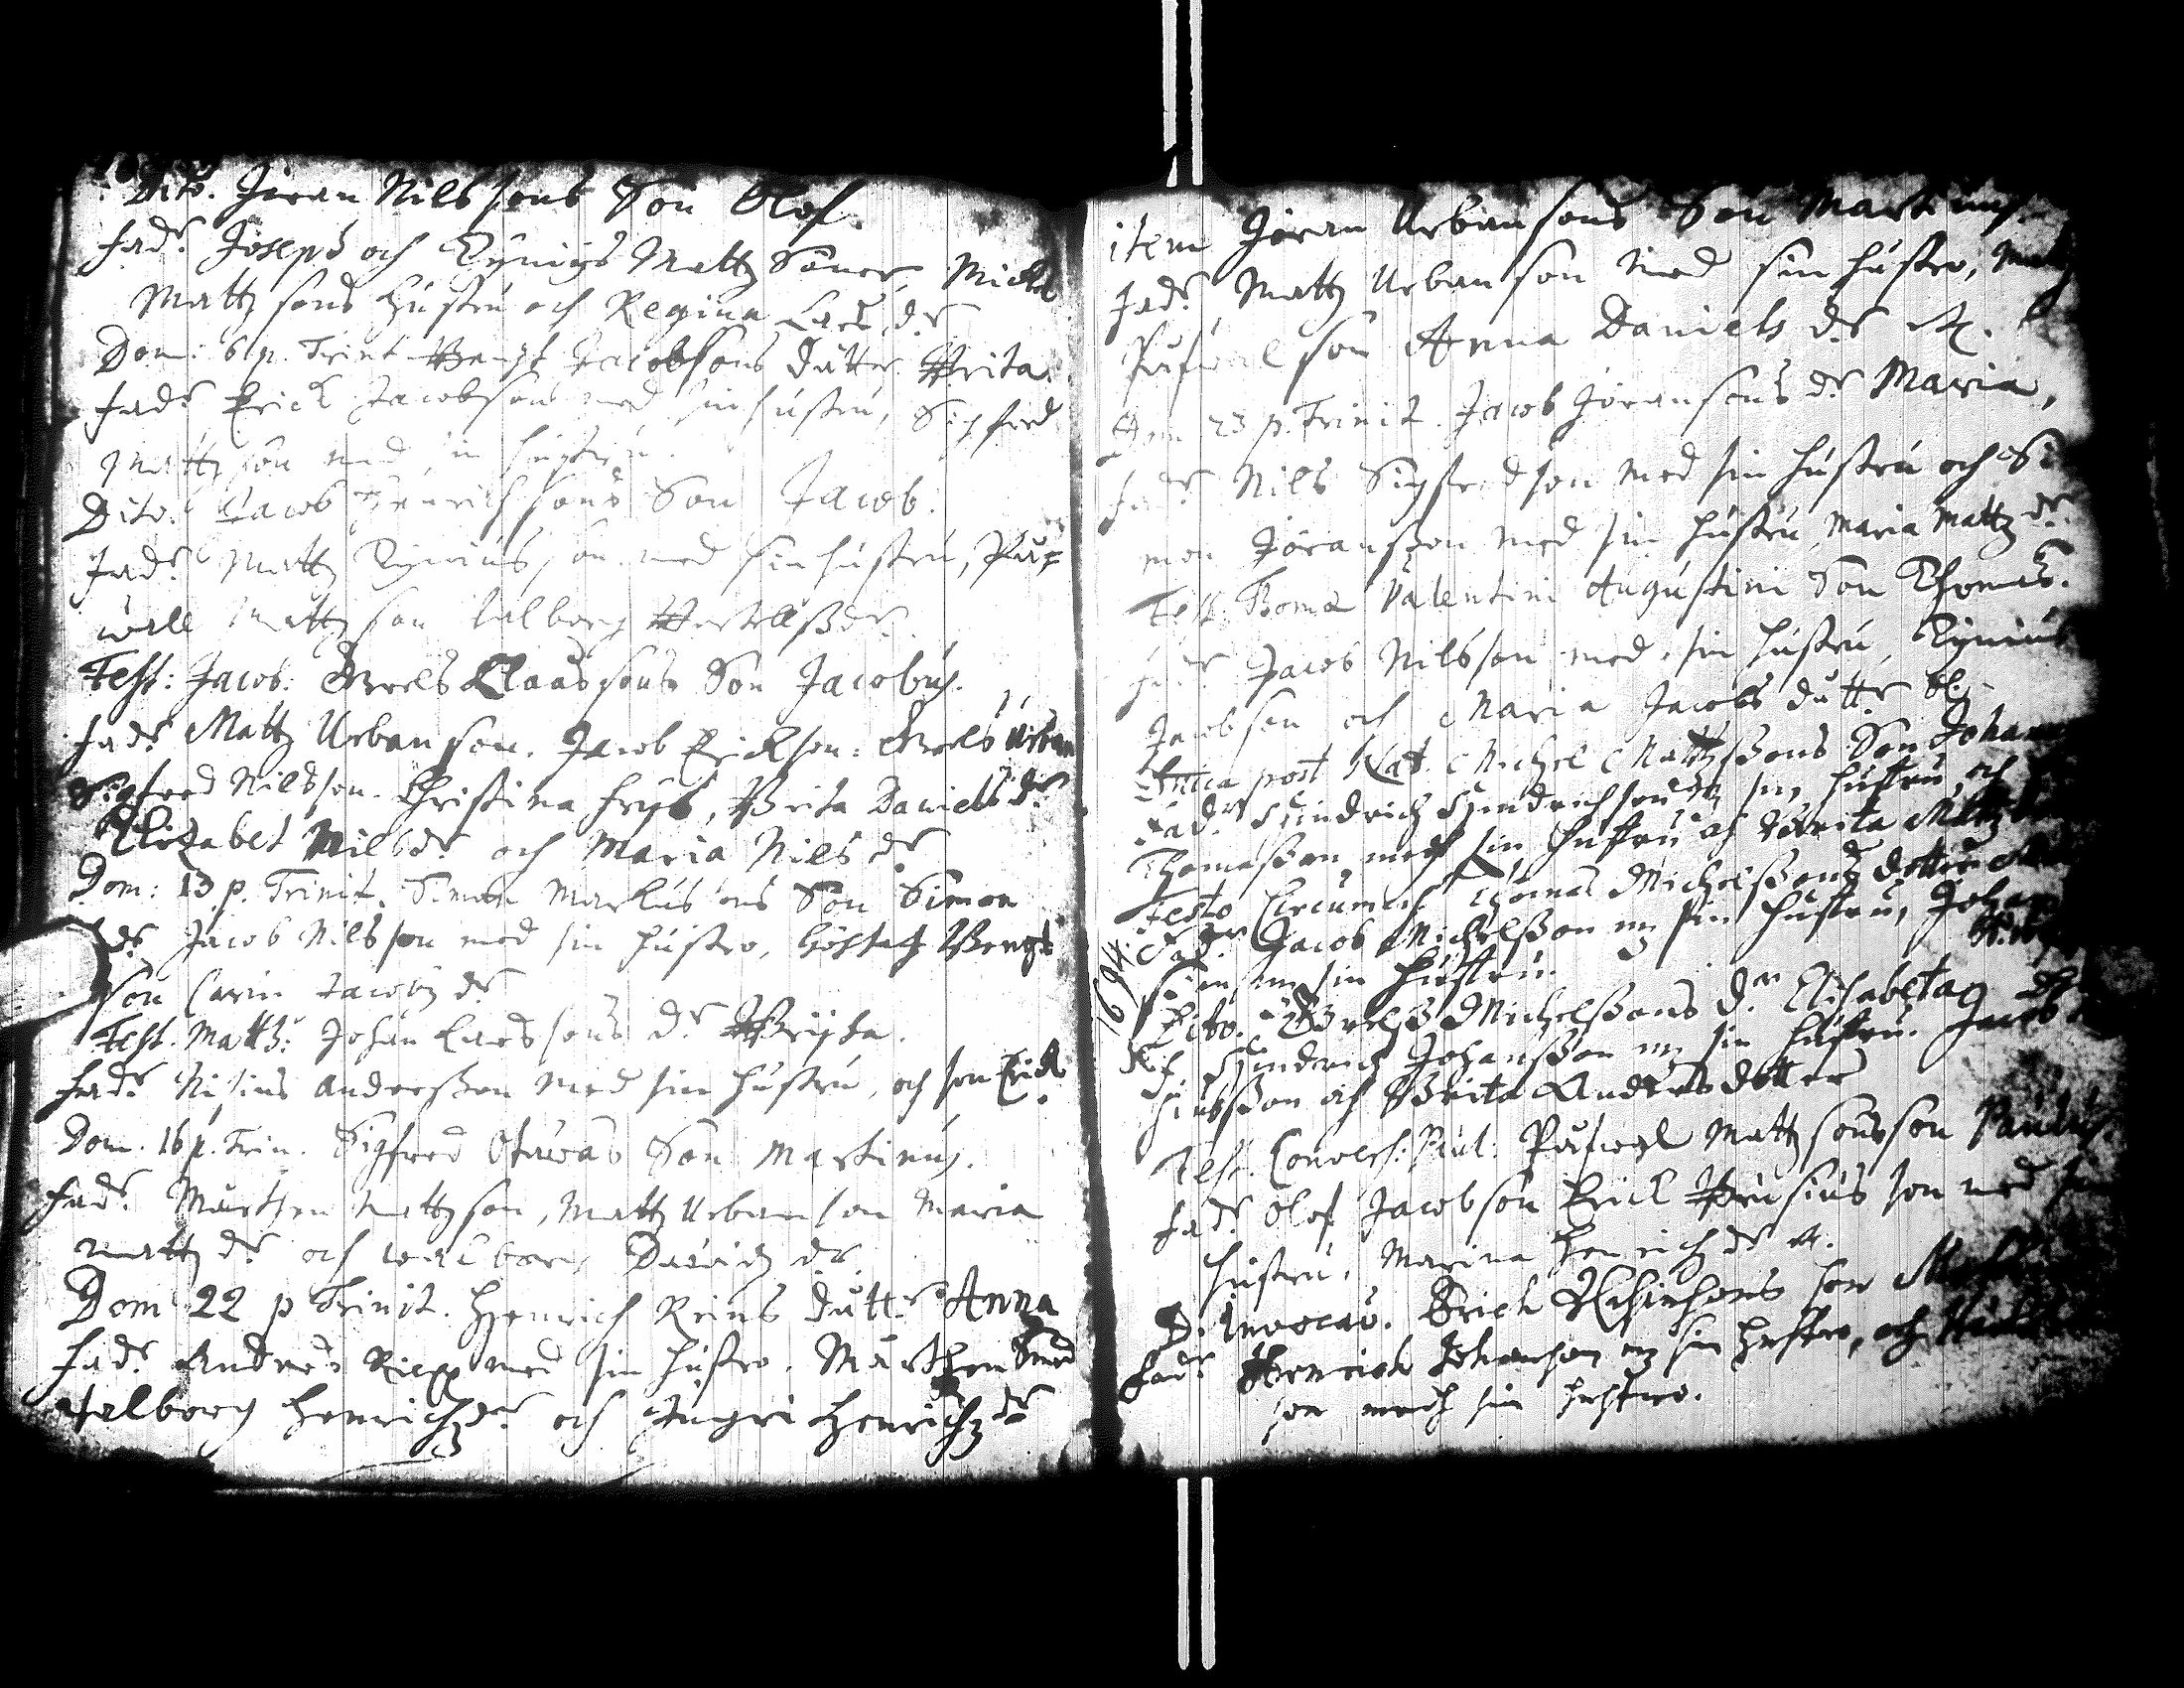 Dito. Jöran Nilssons Son Olof.
fadr. Joseph och Tynius Mattz Söner, Michel
Mattzsons hustru och Regina Lars dr
Dom: 6 p. Trinit Bengt Jacobsons dåtter Brita.
fadr. Erick Jacobson med sin hustru, Sigfred
Mattzson med sin hustru.
Dito. Jacob Henrichsons Son Jacob.
fadr. Mattz Tyniusson med sin hustru, Påf
wall Mattzson Walborg
Fest: Jacob: Brels Claassons Son Jacobus.
fadr Mattz Urbanson. Jacob Erickson: Brels Urban
Sigfred Nilsson. Christina Fryss, Brita Daniels dr
Elizabet Nilsdr och Maria Nils dr
Dom: 13 p. Trinit. Simon Markusons Son Simon
dr Jacob Nilsson med sin hustro, Göstaf Bengt
son Carin Jacobz dr
Fest. Matth: Johan Larssons dr Brijta.
fadr Anderson med sin hustru, och son Erick
Dom. 16 p. Trin. Sigfred Stuwas Son Martinus.
fadr Mårthen Mattzson, Mattz Urbanson Maria
Mattz dr och Walborg Davidz dr
Dom 22 p Trinit. Henrich Reins dåttr Anna
fadr Andres med sin hustro. Mårthen Smed
Walborg Henrichz dr och Ingri Henrichz dr
item Jöran Urbansons Son Martinus.
fadr Mattz Urbanson med sin hustro,
Påfwalson Anna Daniels dr
Dom 23 p. Trinit. Jacob Jöransons dr Maria,
fadr Nils Sigfredson med sin hustru och Si
mon Jöranson med sin hustru, Maria Mattz dr
Fest. Thomæ Valentini Augustini Son Thomas.
fadr Jacob Nilsson med sin hustru, Tynius
Jacobson och Maria Jacobs dåttr
post Nat. Michel Mattssons Son Johan
fadr Hindrich Hindrichson m sin hustru och
Thomasson medh sin hustru och Brita Mattz
Festo Circumcis Thomas Michelssons dotter
1694. Fadr. Jacob Michelsson m sin hustru, Johan
m sin hustru.
Dito. Brels Michelssons dr Elisabeta
Hindrich Johansson m sin hustru. Jacob
son och Brita Andersdotter
Fest. Convers: Paul: Påfwal Mattzsons son Paulus
fadr Olof Jacobson Erick Brusius son med sin
hustru, Marina Henrichz dr
D. Invocav. Erich son
fadr Henrich Johanson m sin hustro, och
son medh sin hustro.